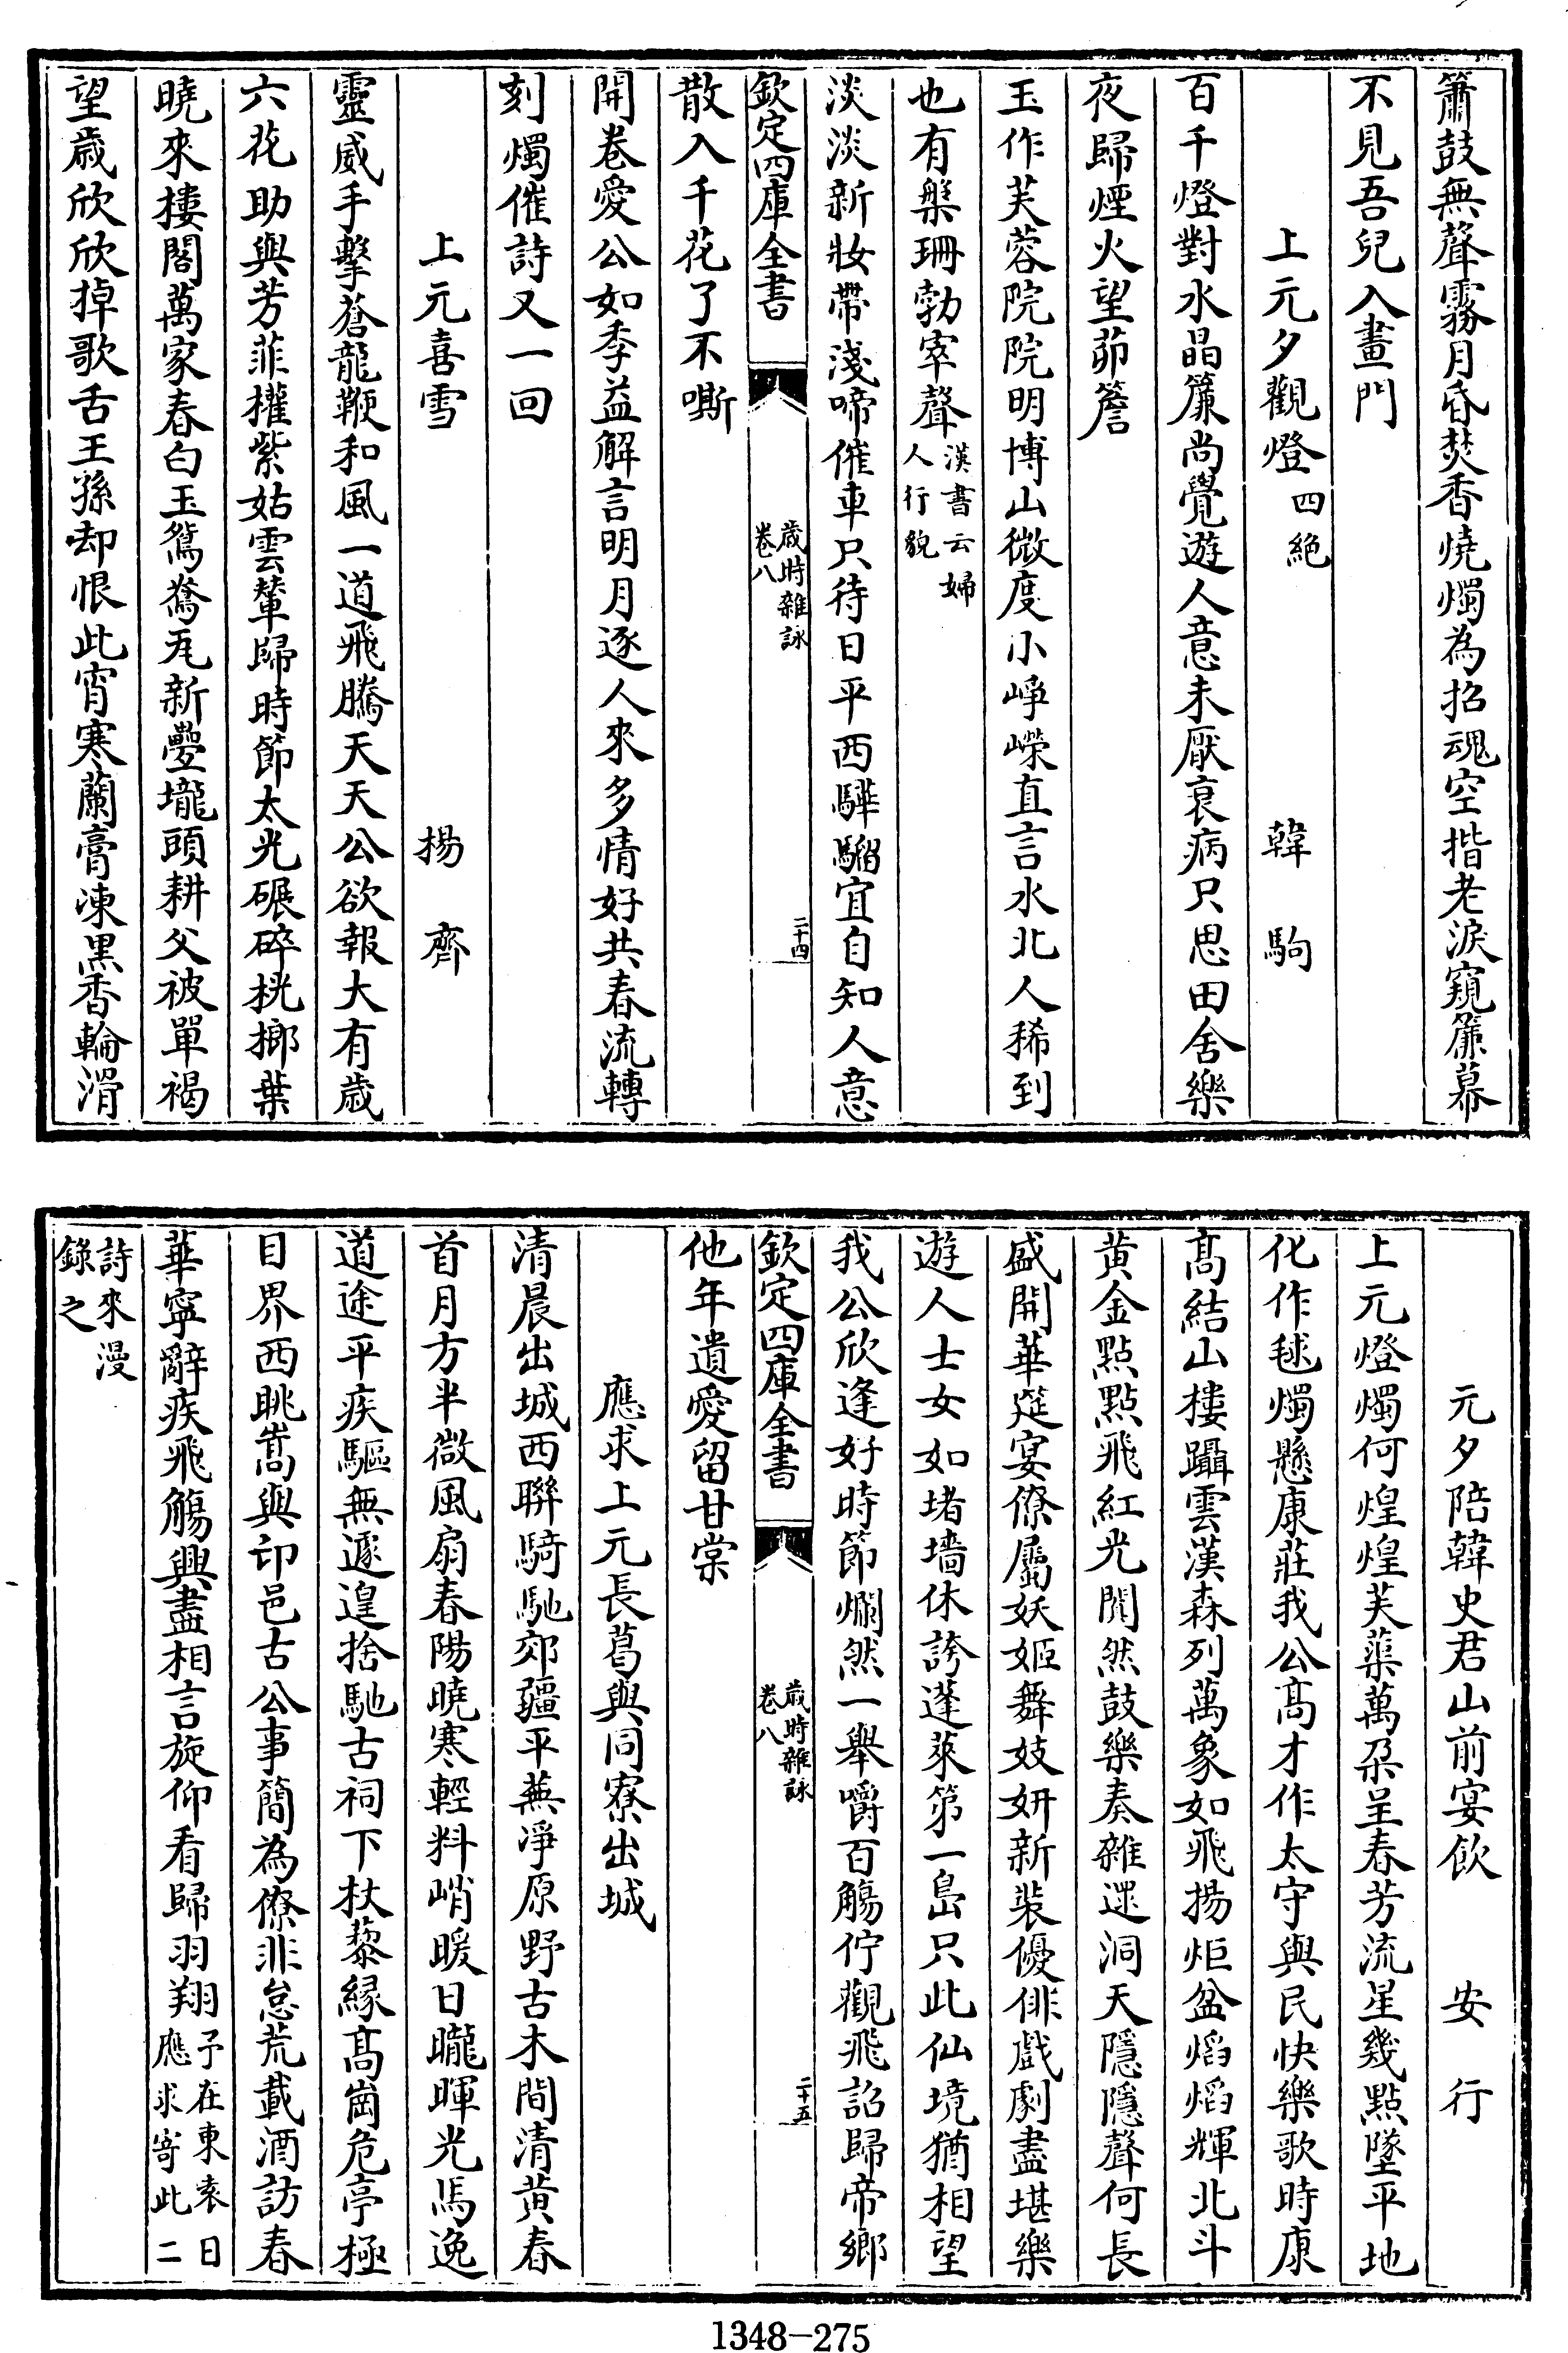 簫鼓無聲霧月昏焚香燒燭為招魂空揩老淚窺簾幕
不見吾兒入畫門
上元夕觀燈四絶　韓駒
百千燈對水晶簾尚覺遊人意未厭衰病只思田舍樂
夜歸煙火望茆簷
玉作芙蓉院院明博山微度小崢嶸直言水北人稀到
也有槃珊勃窣聲漢書云婦人行貌
淡淡新妝帶淺啼催車只待日平西驊騮宜自知人意
欽定四庫全書　歲時雜詠卷八　二十四
散入千花了不嘶
開巻愛公如季益解言明月逐人來多情好共春流轉
刻燭催詩又一回
上元喜雪　揚齊
靈威手擊蒼龍鞭和風一道飛騰天天公欲報大有歲
六花助與芳菲權紫姑雲輦歸時節太光碾碎桄榔葉
曉來樓閣萬家春白玉鴛鴦瓦新疊壠頭耕父被單褐
望歲欣欣掉歌舌王孫却恨此宵寒蘭膏凍黑香輪滑
元夕陪韓史君山前宴飲　安行
上元燈燭何煌煌芙蕖萬朶呈春芳流星幾點墜平地
化作毬燭懸康莊我公髙才作太守與民快樂歌時康
髙結山樓躡雲漢森列萬象如飛揚炬盆熖熖輝北斗
黄金點點飛紅光闐然鼓樂奏雜遝洞天隱隱聲何長
盛開華筵宴僚屬妖姬舞妓妍新裝優俳戲劇盡堪樂
遊人士女如堵墻休誇蓬萊第一島只此仙境猶相望
我公欣逢好時節爛然一舉嚼百觴佇觀飛詔歸帝鄉
欽定四庫全書　歲時雜詠卷八　二十五
他年遺愛留甘棠
應求上元長葛與同寮出城
清晨出城西聯騎馳郊疆平蕪凈原野古木間清黄春
首月方半微風扇春陽曉寒輕料峭暖日曨暉光馬逸
道途平疾驅無遽遑捨馳古祠下杖藜縁髙崗危亭極
目界西眺嵩與卬邑古公事簡為僚非怠荒載酒訪春
華寧辭疾飛觴興盡相言旋仰看歸羽翔予在東袁日應求寄此二
詩來漫錄之
1348-275